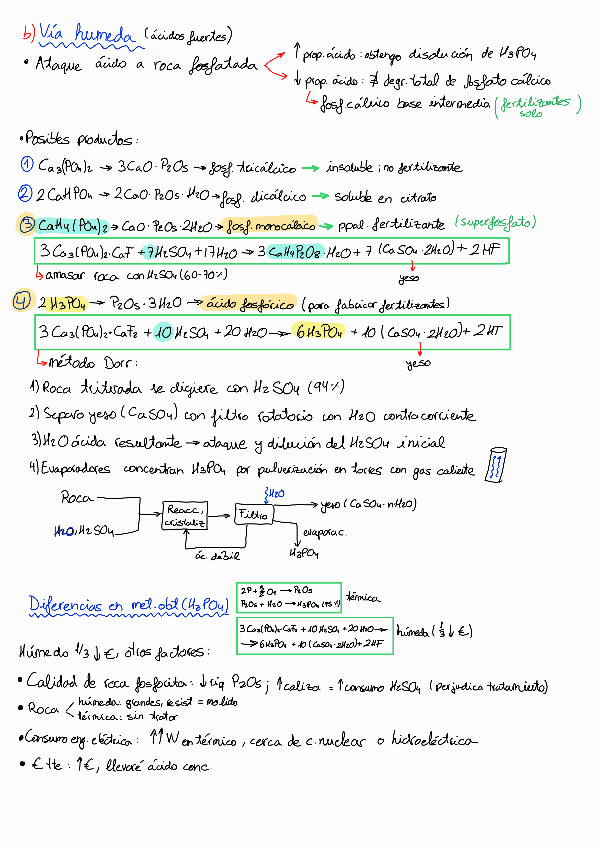 b) Vía humeda (ácidos fuertes)
• Ataque ácido a roca fosfatada
↑ prop. ácido: obtengo disolución de H3PO4
↓ prop. ácido: ∄ degr. total de fosfato cálcico
↳ fosf. cálcico base intermedia (fertilizantes solo
• Posibles productos:
① Ca3(PO4)2 → 3CaO·P2O5 → fosf. tricálcico → insoluble ; no fertilizante
② 2CaHPO4 → 2CaO·P2O5·H2O → fosf. dicálcico → soluble en citrato
③ CaH4(PO4)2 → CaO·P2O5·2H2O → fosf. monocálcico → ppal. fertilizante (superfosfato)
3Ca3(PO4)2·CaF + 7H2SO4 + 17H2O → 3 CaH4P2O8·H2O + 7 (CaSO4·2H2O) + 2HF
↳ amasar roca con H2SO4 (60-70%)
yeso
④ 2 H3PO4 → P2O5·3H2O → ácido fosfórico (para fabricar fertilizantes)
3Ca3(PO4)2·CaF2 + 10 H2SO4 + 20 H2O → 6H3PO4 + 10 (CaSO4·2H2O) + 2HF
↳ método Dorr:
yeso
1) Roca triturada se digiere con H2SO4 (94%)
2) Separo yeso (CaSO4) con filtro rotatorio con H2O contracorriente
3) H2O ácida resultante → ataque y dilución del H2SO4 inicial
4) Evaporadores concentran H3PO4 por pulverización en torres con gas caliente
Roca
H2O, H2SO4
Reacc, cristaliz
H2O
Filtro
yeso (CaSO4·nH2O)
evaporac.
H3PO4
ác. débil
Diferencias en met. obt (H3PO4)
2P + 5/2 O2 → P2O5
P2O5 + H2O → H3PO4 (75%)
térmica
3Ca3(PO4)2·CaF2 + 10H2SO4 + 20H2O →
→ 6H3PO4 + 10 (CaSO4·2H2O) + 2HF
húmeda (1/3 ↓ €)
Húmedo 1/3 ↓ €, otros factores:
• Calidad de roca fosforita: ↓ riq P2O5 ; ↑ caliza = ↑ consumo H2SO4 (perjudica tratamiento)
• Roca
húmeda: grandes, resist = molido
térmica: sin tratar
• Consumo eng. eléctrica: ↑↑ W en térmico, cerca de c. nuclear o hidroeléctrica
• € tte: ↑€, llevaré ácido conc.